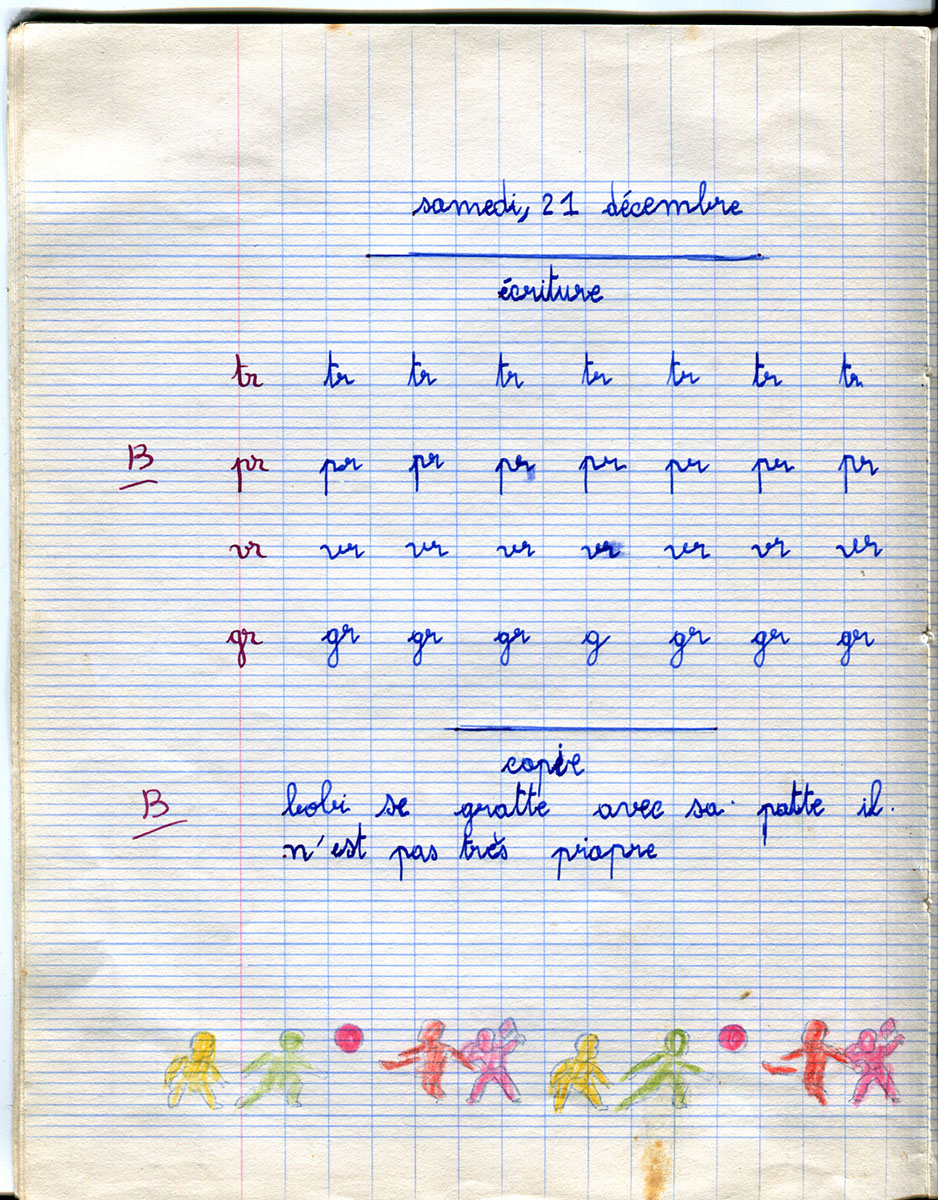 samedi, 21 décembre
écriture
tr tr tr tr tr tr tr tr
B pr pr pr pr pr pr pr pr
vr vr vr vr vr vr vr vr
gr gr gr gr g gr gr gr
copie
B bobi se gratte avec sa patte il.
n'est pas très propre